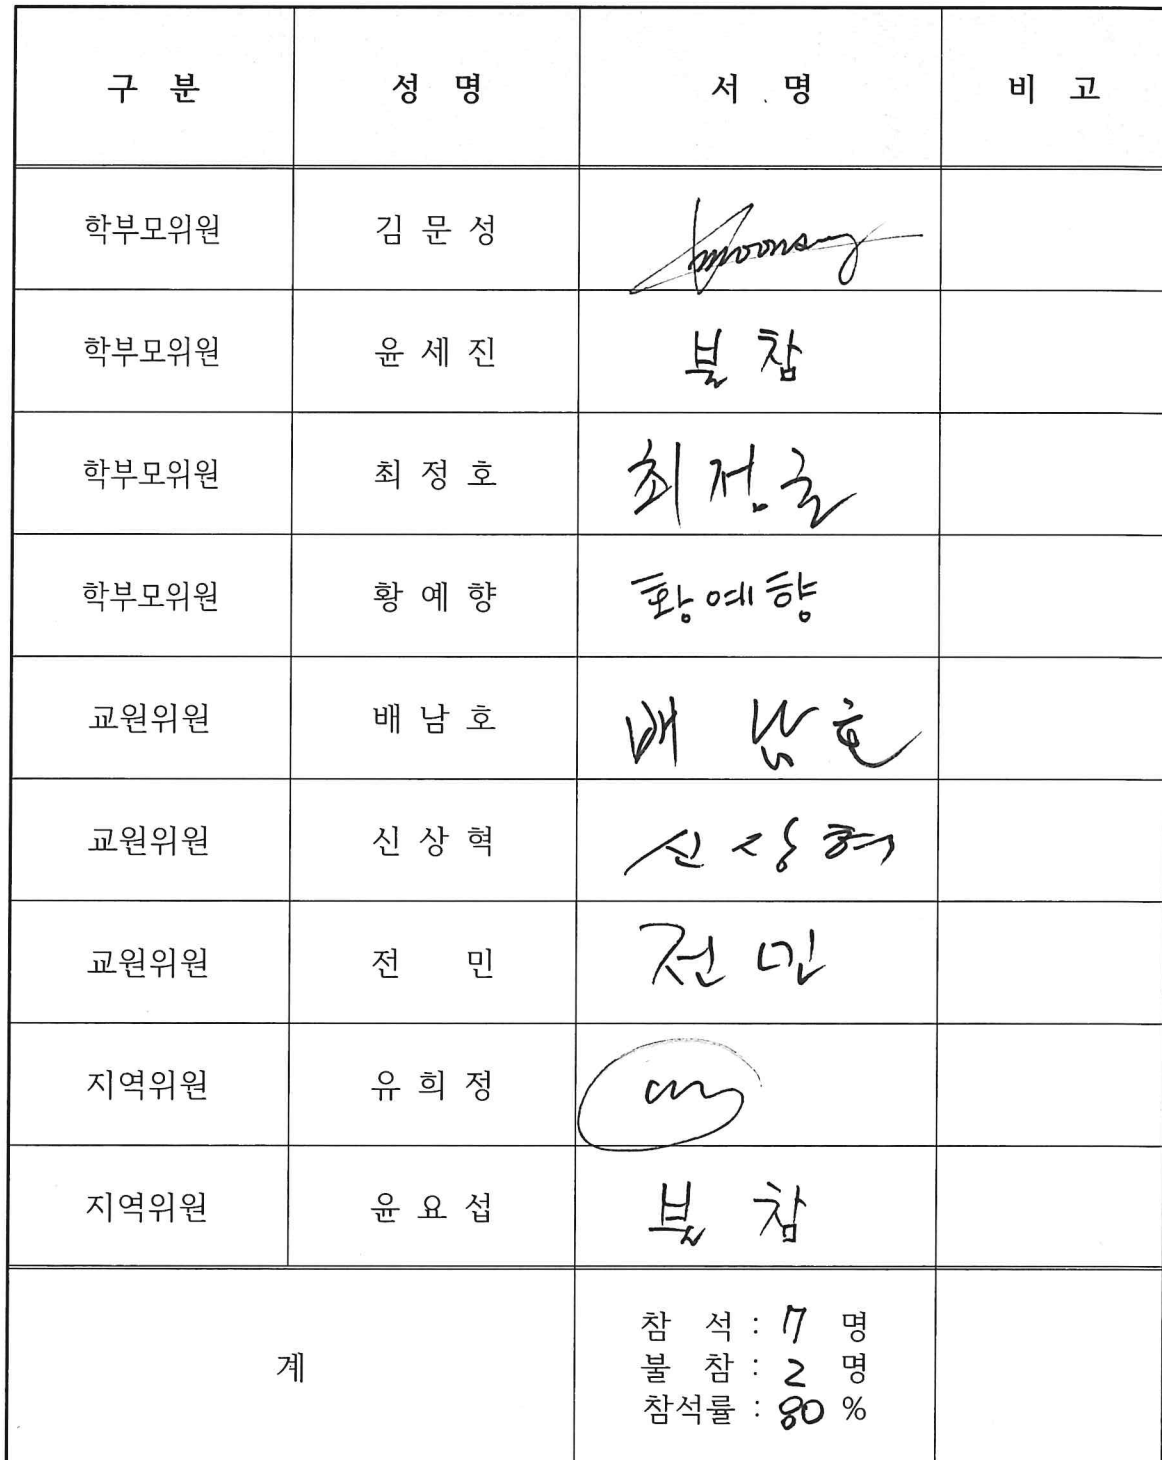 구 분 성 명 서 명 비 고
학부모위원 김 문 성
학부모위원 윤 세 진 불 참
학부모위원 최 정 호 최 정 호
학부모위원 황 예 향 황 예 향
교원위원 배 남 호 배 남 호
교원위원 신 상 혁 신 상 혁
교원위원 전 민 전 민
지역위원 유 희 정
지역위원 윤 요 섭 불 참
계
참 석 : 7 명
불 참 : 2 명
참석률 : 80 %